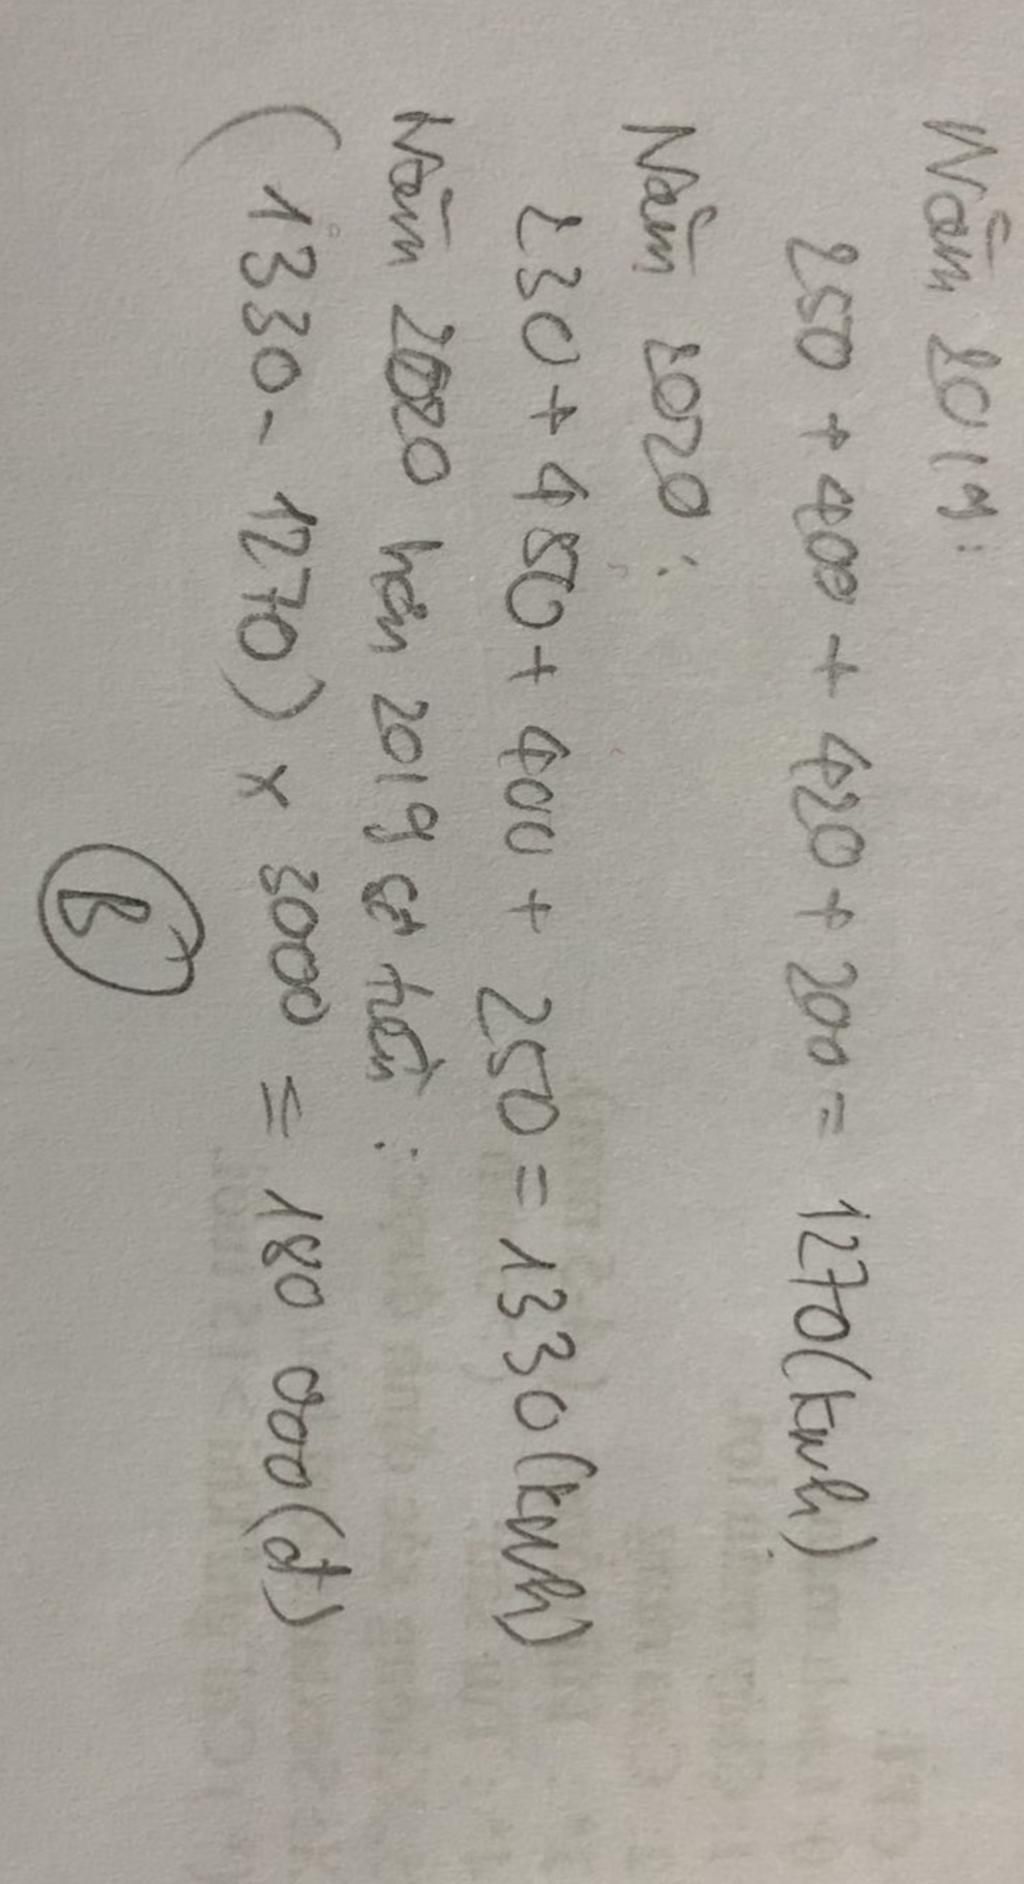 Năm 2019:
250 + 400 + 420 + 200 = 1270 (kwh)
Năm 2020:
230 + 450 + 400 + 250 = 1330 (kwh)
Năm 2020 hơn 2019 số tiền:
(1330 - 1270) x 3000 = 180 000 (đ)
B